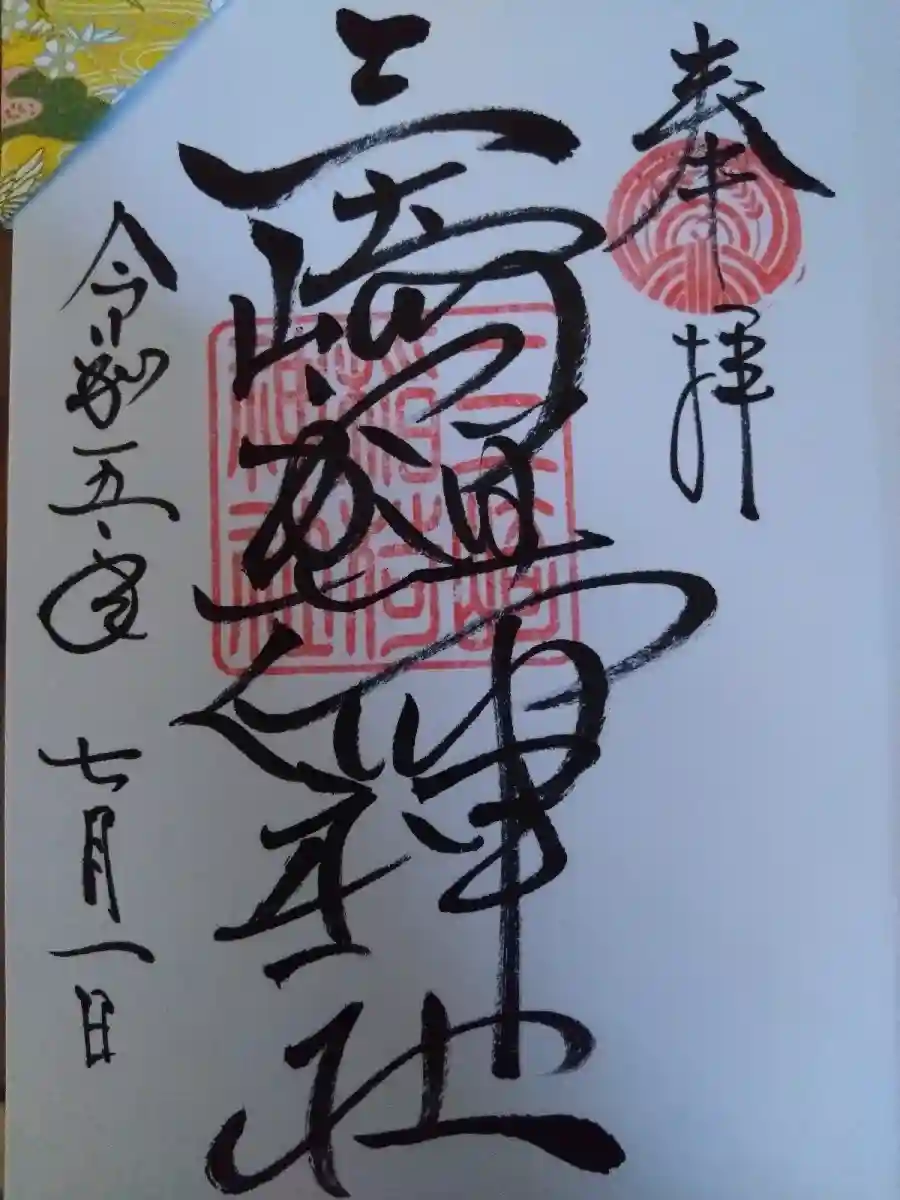 奉拝
三崎稲荷神社
令和五年 七月一日